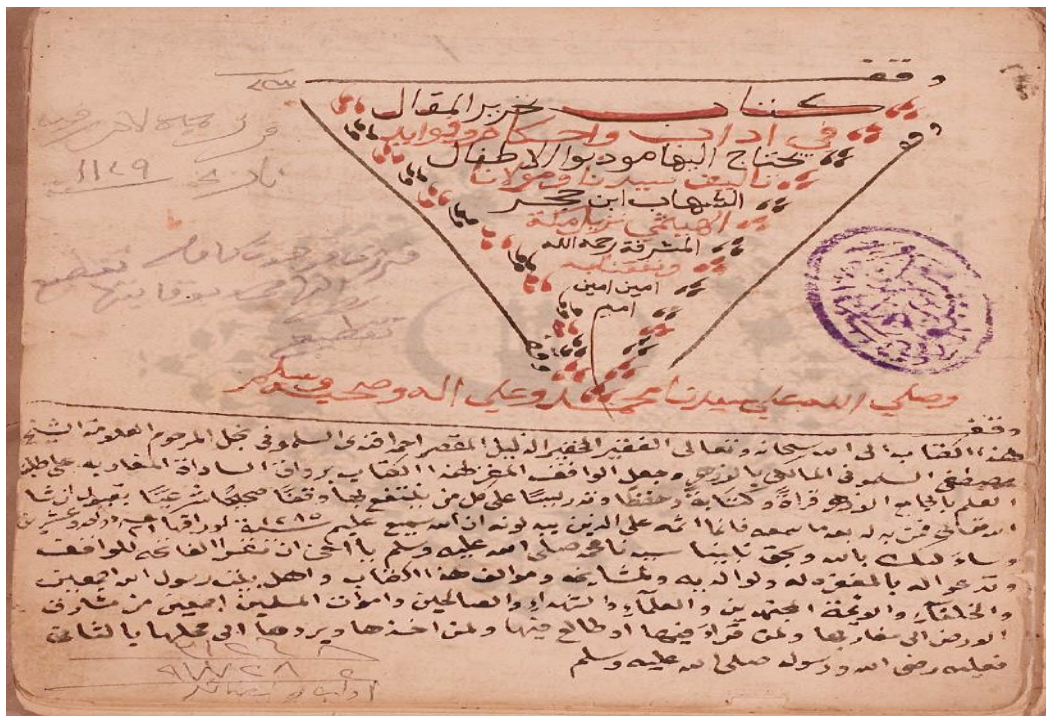 وقف
كتاب تحرير المقال
في اداب واحكام وفوايد
يحتاج اليها مودبوا الاطفال
تاليف سيدنا ومولانا
الشهاب ابن حجر
الهيثمي نزيل مكة
المشرفة رحمه الله
امين امين
امين
وصلي الله علي سيدنا محمد وعلي اله وصحبه وسلم
وقف
هذا الكتاب الى الله سبحانه وتعالى الفقير الحقير الذليل المقصر احمد افندى السملوفى نجل المرحوم العلامة الشيخ
مصطفى السملوفى المالكى بالازهر وجعل الواقف المقر لهذا الكتاب برواق الساداة المغاربه على طلبة
العلم بالجامع الازهر قراةً وكتابة وحفظا وتدريسا على كل من ينتفع بها وقفا صحيحا شرعيا بقبول ان شا
الله تعالى فمن بدله بعد ما سمعه فانما اثمه على الذين يبدلونه ان الله سميع عليم اوراقها
وساءلتك بالله وبحق نابينا سيدنا محمد صلى الله عليه وسلم يا اخى ان تقرا الفاتحه للواقف
وتدعوا له بالمغفره له ولوالديه ولمشايخه ومؤلف هذا الكتاب واهل بيت رسول الله اجمعين
والخلفآء والايمة المجتهدين والعلمآء والشهداء والصالحين واموات المسلمين اجمعين من مشارق
الارض الى مغاربها ولمن قراء فيها او طالع فيها ولمن اخذها ويردها الى محلها بالثانى
فعليه رضى الله ورسوله صلى الله عليه وسلم